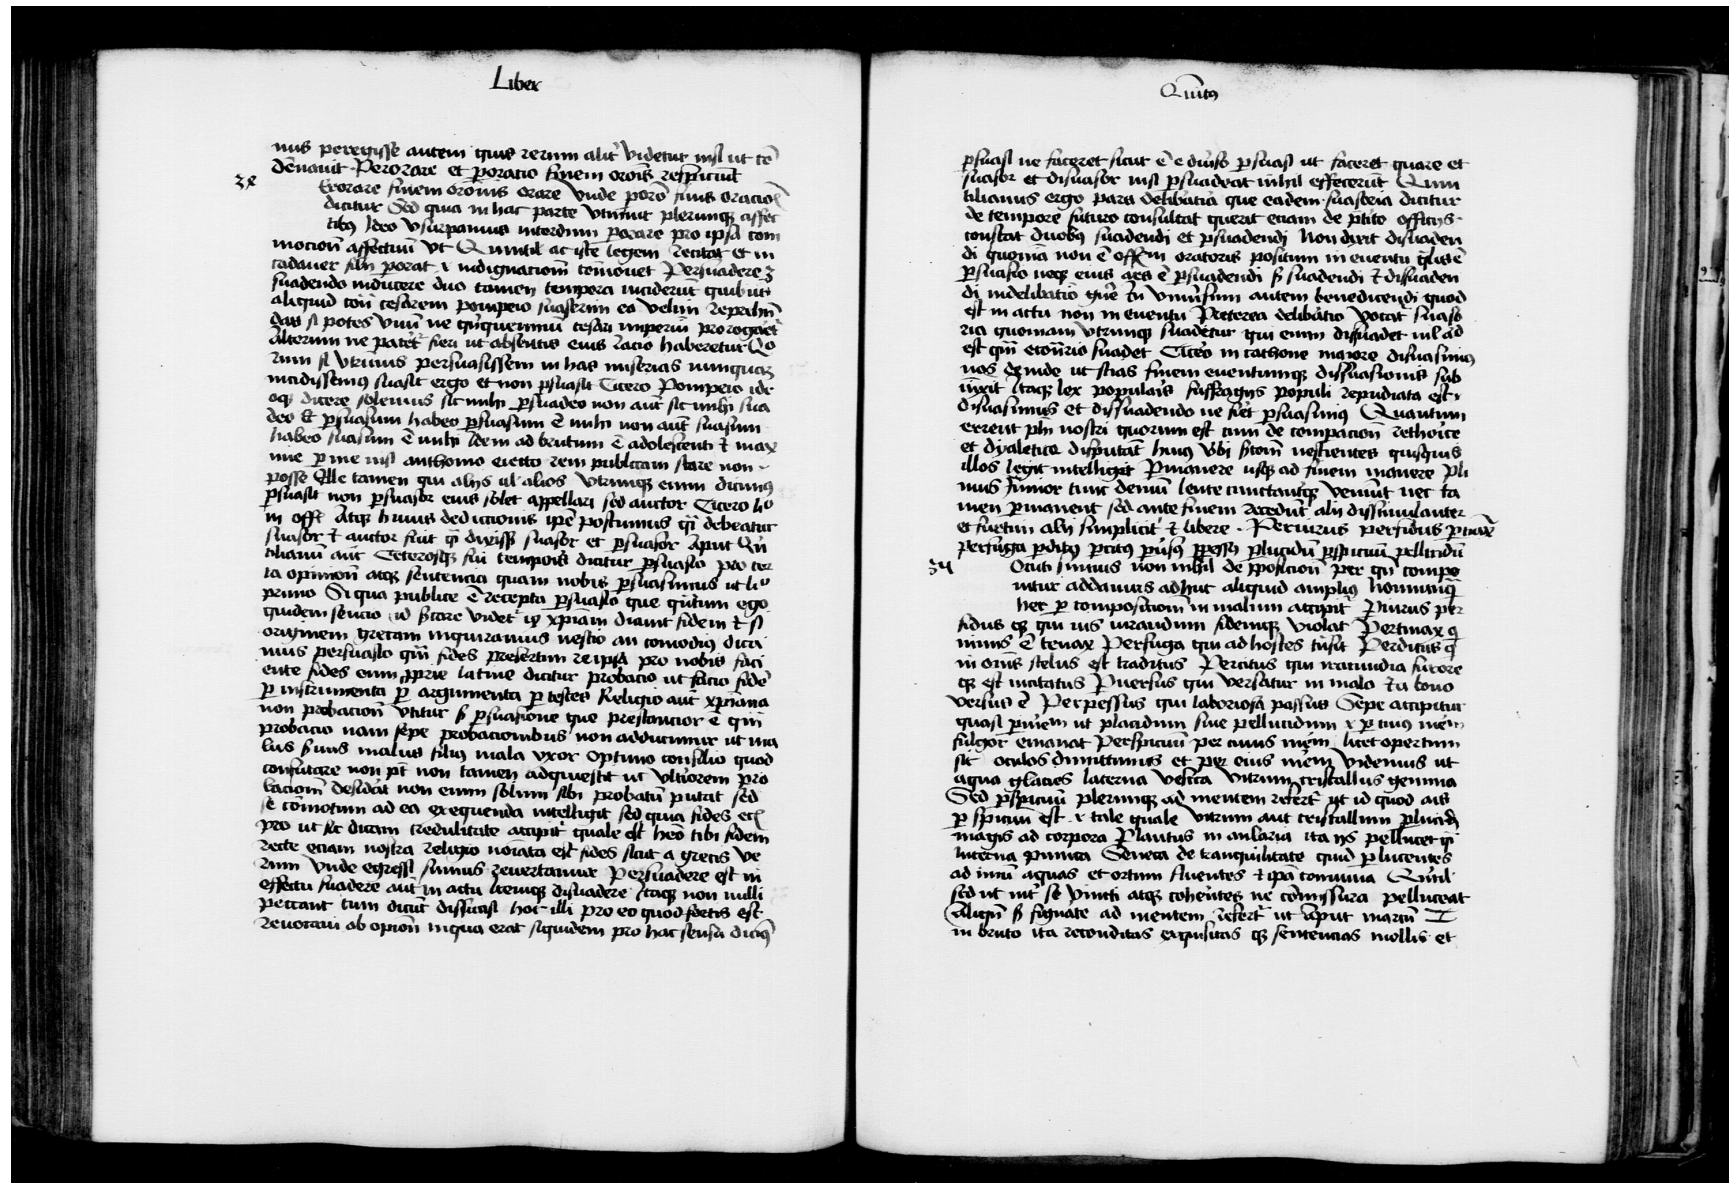 Liber
nus peregisse autem quis rerum alit᷑ videtur nisi ut cō
dēnauit · Perorare et ꝑoratio finem orōis respiciūt
30 Erorare finem orōnis orare vnde ꝑorō finis oracōis
dicitur Sed quia in hac parte vtimur plerumqꝫ affec
tibꝰ Ideo vsurpamus interdum ꝑorare pro ipsa com
mocionē affectuū vt Quintil ac iste legem recitat et in
cadauer filii ꝑorat ⁊ indignacionē cōmouet Persuadere ÷
suadendo inducere duo tamen tempora inciderūt quibus
aliquid cōtˀ cesarem pompeio suaserim ea velim reprehen
das si potes vnū ne quinquenniū cesari imperiū prorogaret
Alterum ne pateret᷑ fieri ut absentis eius racio haberetur Quo
rum si vtrumus persuasissem in has miserias nunquaꝫ
incidissemꝰ suasit ergo et non ꝑsuasit Cicero Pompeio ide
oqꝫ dicere solemus sic mihi ꝑsuadeo non aūt sic mihi sua
deo Et ꝑsuasum habeo ꝑsuasum ē mihi non aūt suasum
habeo suasum ē mihi Idem ad brutum ē adolescenti ⁊ max
ime ꝑ me nisi anthonio eiecto rem publicam stare non
posse Ille tamen qui alijs uˡ alios vtrumqꝫ enim dicimꝰ
ꝑsuasit non ꝑsuasor eius solet appellari sed auctor Cicero liᵒ
in offˡ Atqꝫ huius deductionis ipē postumus q̄ debeatur
suasor ⁊ auctor fuit q̄ dixissꝫ suasor et ꝑsuasor Aput Quī
tilianū aūt Ceterosqꝫ sui temporis dicitur ꝑsuasio pro cer
ta opinionē atqꝫ sentencia quam nobis ꝑsuasimus ut liᵒ
primo Si qua publice ē recepta ꝑsuasio que quātum ego
quidem sencio id p̄stare videt᷑ qꝫ xp̄iani dicunt fidem ⁊ si
originem grecam inquiramus nescio an comodiꝰ dica
mus persuasio qm̄ fides presertim re ipsa pro nobis faci
ente fides enim ꝓprie latine dicitur probacio ut facio fidē
ꝑ instrumenta ꝑ argumenta ꝑ testes Religio aūt xp̄iana
non probacionē vtitur sꝫ ꝑsuasione que prestancior ē qm̄
probacio nam sepe probacionibus non adducimur ut ma
lus seruus malus filiꝰ mala vxor optimo consilio quod
confutare non pōt non tamen adquiescit ut vlteriorem pro
bacionē desiderat non enim solum sibi probatū putat sed
se cōmotum ad ea exequenda intelligit sed quia fides etˡ
pro ut sic dicam credulitate accipit᷑ quale est heō tibi fidem
recte eciam nostra religio noīata est fides sicut a grecis ve
rum vnde egressi sumus reuertamur Persuadere est in
effectu suadere aūt in actu itemqꝫ disuadere Itaqꝫ non nulli
peccant cum dicūt dissuasi hoc illi pro eo quod fortis est
reuocaui ab opionē in qua erat siquidem pro hac sensu dicimꝰ
Quīntꝰ
ꝑsuasi ne faceret sicut ē e diuˢo ꝑsuasi ut faceret quare et
suasor et disuasor nisi ꝑsuadeat nihil effecerūt Quin
tilianus ergo pars delibatiua que eadem suasoria dicitur
de tempore futuro consultat querit eciam de p̄terito officijs
constat duobꝰ suadendi et ꝑsuadendi Non dixit disuaden
di quoniā non ē offm̄ oratoris positum in euentu
ꝑsuasio neqꝫ eius ars ē ꝑsuadendi sꝫ suadendi ⁊ disuaden
di in delibatiō gnˀe tn̄ vniuˢsum autem benedicendi quod
est in actu non in euentu Preterea delibatio vocat᷑ suaso
ria quoniam vtrumqꝫ suadetur qui enim dissuadet nil ad
est qm̄ ecōtrˀio suadet Cicero in cathone maiore disuasimꝰ
nos deinde ut scias finem euentumqꝫ dissuasionis sub
iūxit Itaqꝫ lex popularis suffragijs populi repudiata est
disuasimus et dissuadendo ne fiet᷑ ꝑsuasimꝰ Quantum
errent ph̄i nostri quorum est cum de compacionē rethorice
et dyaletice disputāt huiꝰ vˀbi p̄tom nescientes quisquis
illos legit intelliget Permanere usqꝫ ad finem manere Pli
nius Iunior tunc demū lente cunctanterqꝫ veniūt nec ta
men ꝑmanent sed ante finem recedūt alij dissimulanter
et furtim alij simplicit᷑ ⁊ libere · Periurus perfidus ꝑtinax
perfuga ꝑditꝰ ꝑcitꝰ ꝑuˢsꝰ ꝑpessꝰ ꝑlucidū ꝑspicuū pellucidū
31 Ocuti sumus non nihil de ꝓposicionē per qm̄ compo
nitur addamus adhuc aliquid ampliꝰ Nonnunqꝫ
hec ꝑ composicionē in malum accipit᷑ Periurus per
fidus qꝫ qui ius iurandum fidemqꝫ violat Pertinax q̄
nimis ē tenax Perfuga qui ad hostes trāsit Perditus q̄
in oīs scelus est traditus Percitus qui iracundia furore
qꝫ est incitatus Peruersus qui versatur in malo ⁊ a bono
versus ē Perpessus qui laboriosa passus Sepe accipitur
quasi ꝑ iuuem ut placidum siue pellucidum ⁊ ꝑ cuius mēm
fulgor emanat Perspicuū per cuius mēm licet opertum
sit oculos dimittimus et per eius mēm videmus ut
aqua glacies laterna vesica vitrum cristallus gemma
Sed ꝑspicuū plerumqꝫ ad mentem refert᷑ ut id quod ais
ꝑspicuū est ⁊ tale quale vitrum aut cristallum ꝑlucidꝫ
magis ad corpora Plautus in aulularia ita ijs pellucet q̄
laterna punica Seneca de tranquilitate quid ꝑlucentes
ad imū aquas et ortum fluentes ⁊ ipā conuiuia Quītil
sed ut int᷑ se vincti atqꝫ coherētes ne cōmissura pelluceat
Aliqn̄ sꝫ figurate ad mentem refert᷑ ut aput marcū T
in bruto ita reconditas exquisitas qꝫ sentencias mollis et